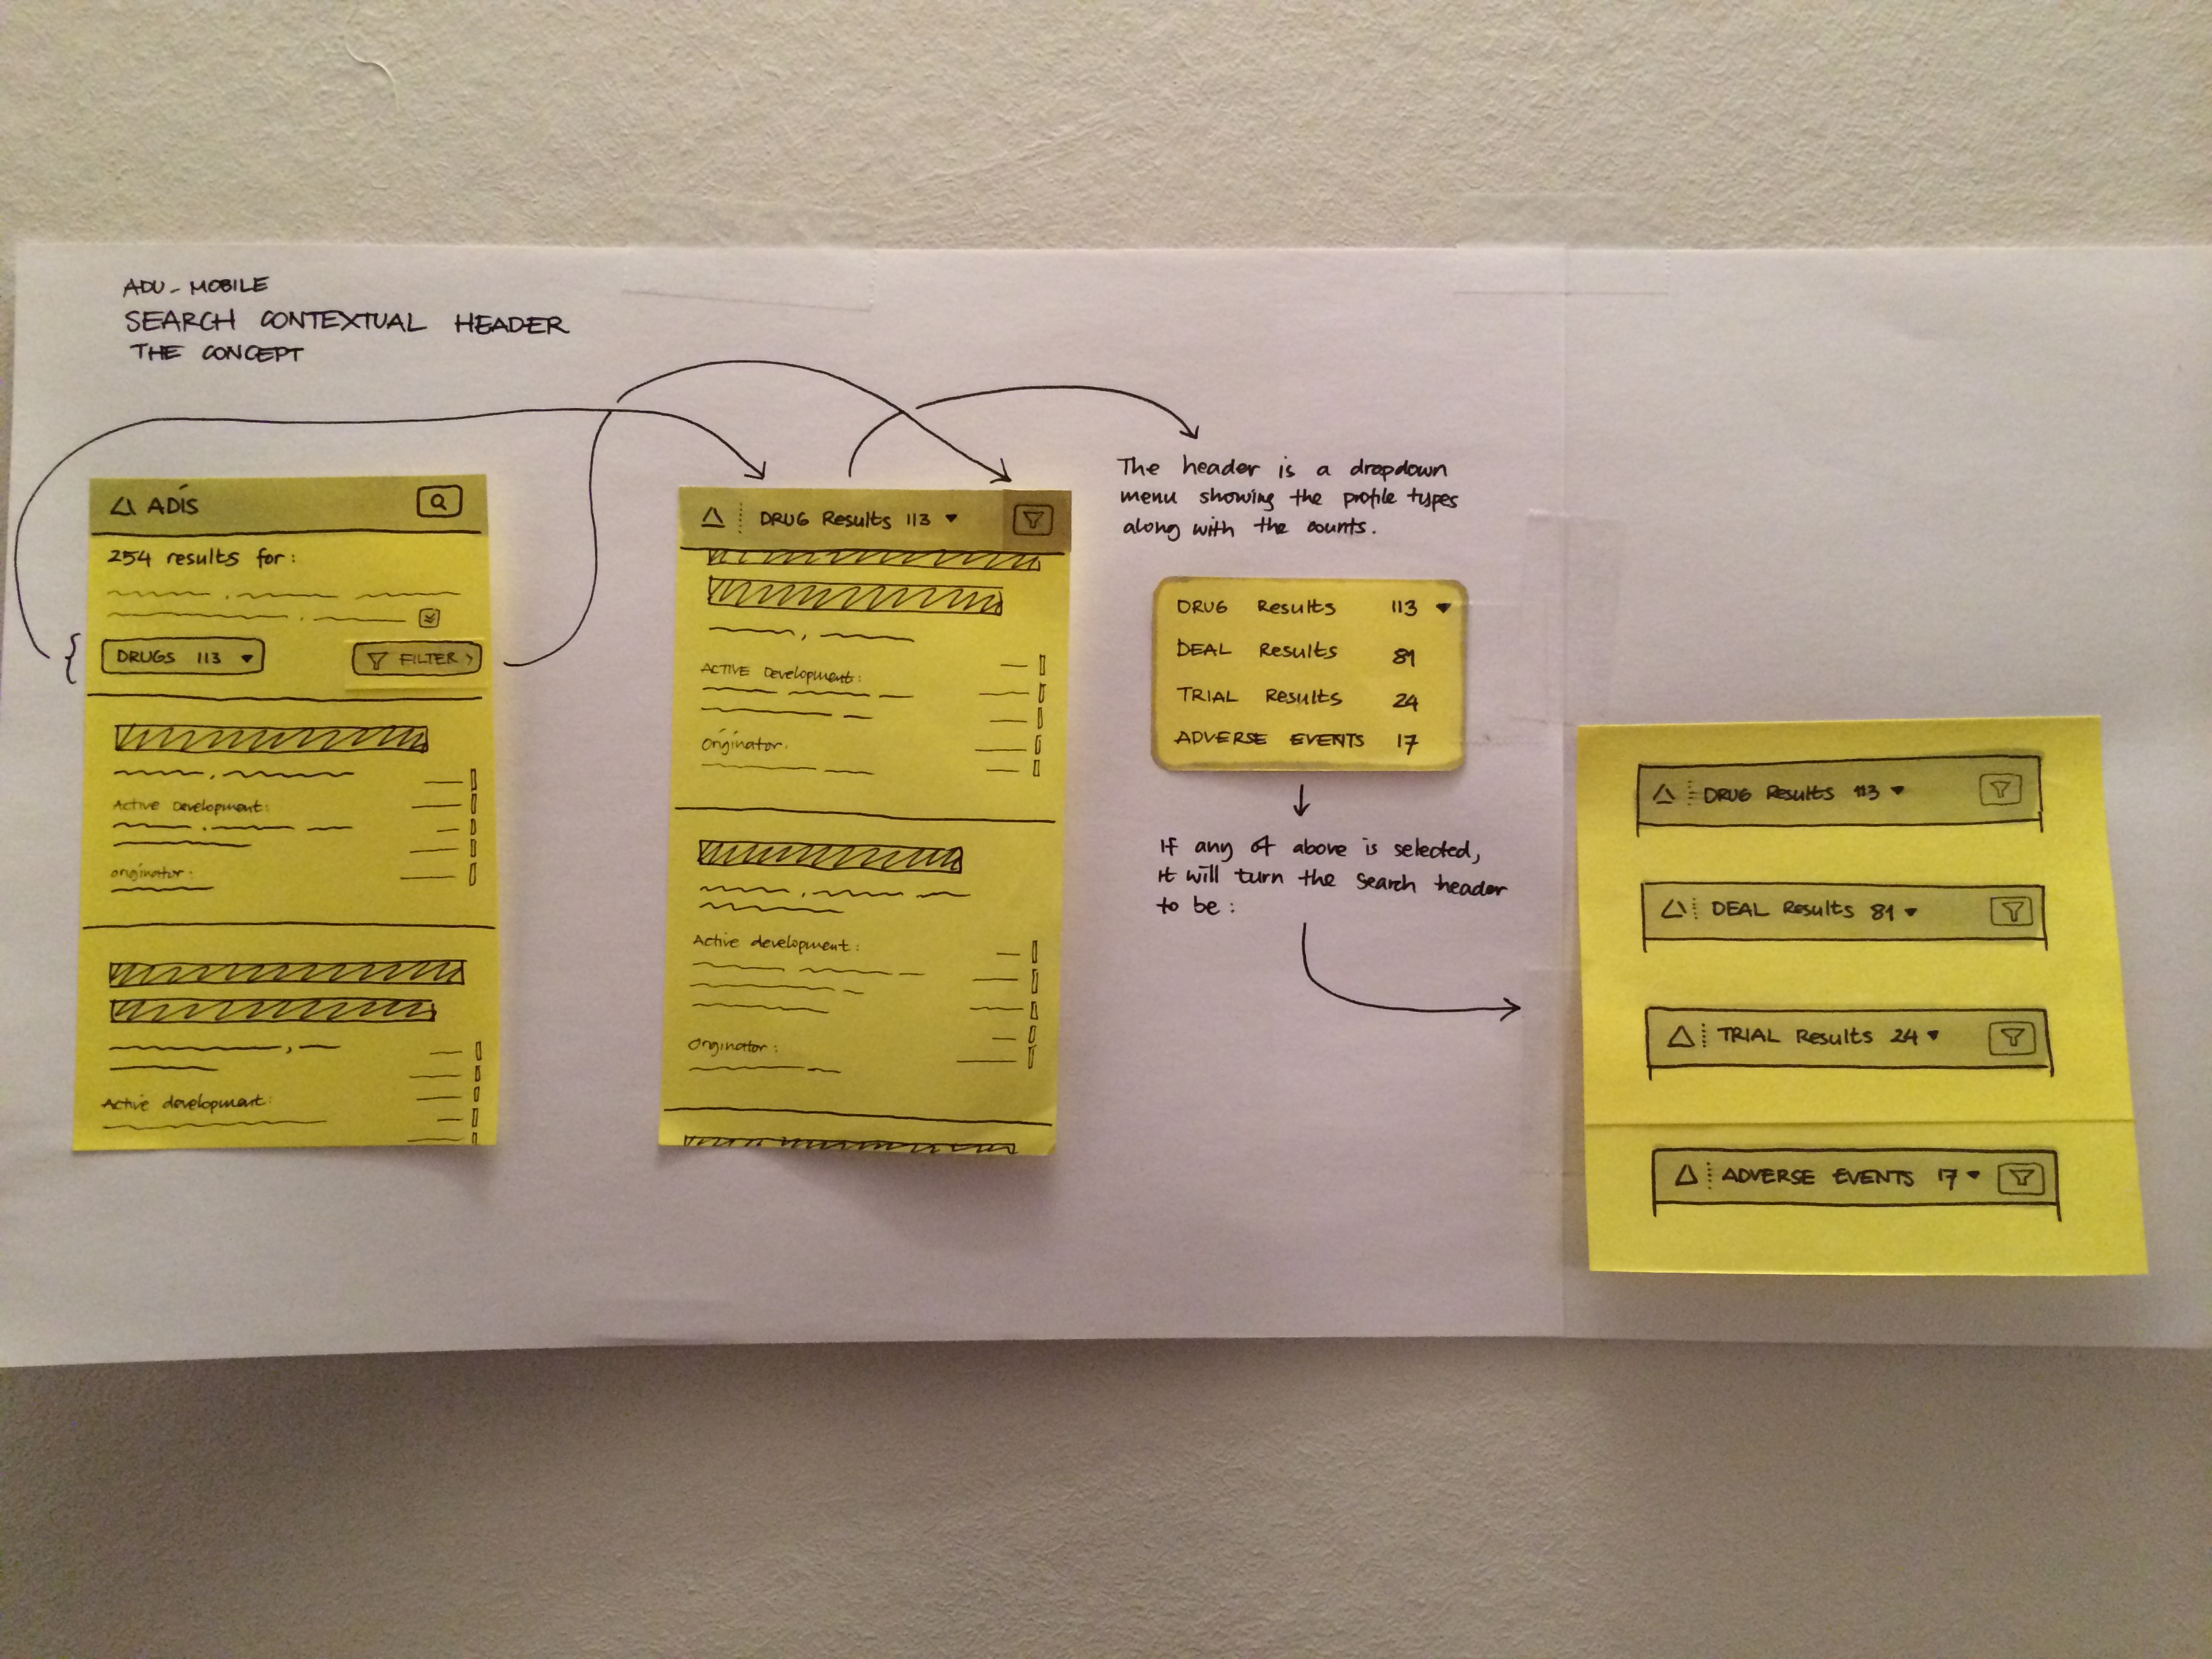 ADU - MOBILE
SEARCH CONTEXTUAL HEADER
THE CONCEPT
ADIS
254 results for:
DRUGS 113
FILTER >
Active Development:
originator:
Active development:
DRUG Results 113
ACTIVE Development:
Originator:
Active development:
Orginator:
The header is a dropdown
menu showing the profile types
along with the counts.
DRUG Results 113
DEAL Results 81
TRIAL Results 24
ADVERSE EVENTS 17
If any of above is selected,
it will turn the search header
to be:
DRUG Results 113
DEAL Results 81
TRIAL Results 24
ADVERSE EVENTS 17